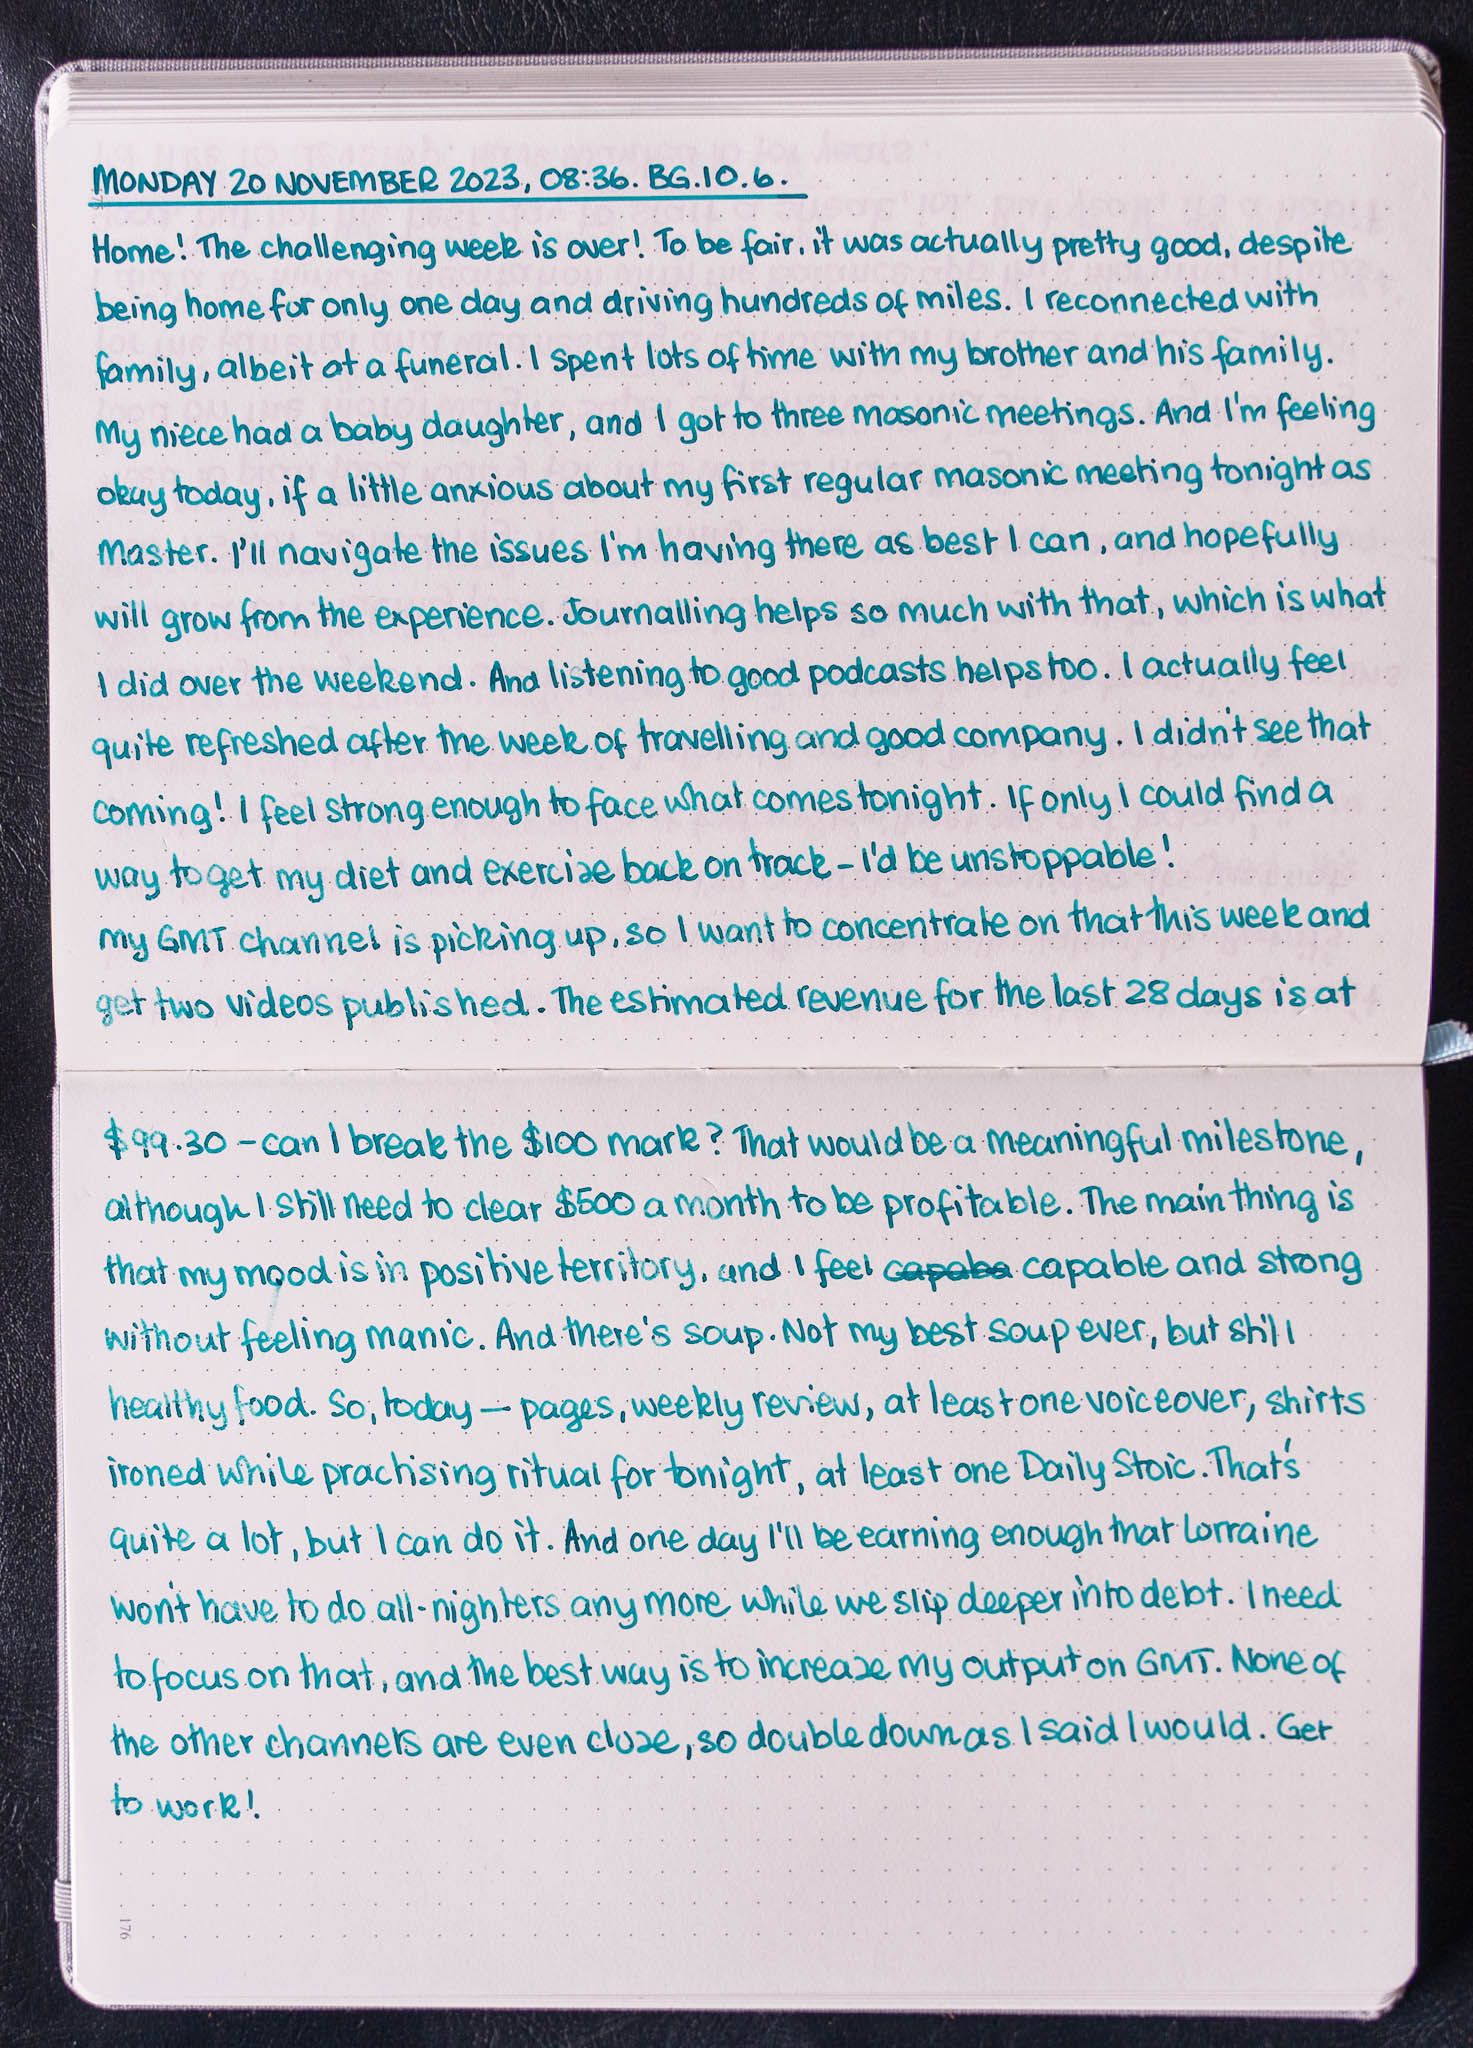 MONDAY 20 NOVEMBER 2023, 08:36. BG.10.6.
Home! The challenging week is over! To be fair, it was actually pretty good, despite
being home for only one day and driving hundreds of miles. I reconnected with
family, albeit at a funeral. I spent lots of time with my brother and his family.
My niece had a baby daughter, and I got to three masonic meetings. And I'm feeling
okay today, if a little anxious about my first regular masonic meeting tonight as
Master. I'll navigate the issues I'm having there as best I can, and hopefully
will grow from the experience. Journalling helps so much with that, which is what
I did over the weekend. And listening to good podcasts helps too. I actually feel
quite refreshed after the week of travelling and good company. I didn't see that
coming! I feel strong enough to face what comes tonight. If only I could find a
way to get my diet and exercise back on track – I'd be unstoppable!
My GMT channel is picking up, so I want to concentrate on that this week and
get two videos published. The estimated revenue for the last 28 days is at
$99.30 – can I break the $100 mark? That would be a meaningful milestone,
although I still need to clear $500 a month to be profitable. The main thing is
that my mood is in positive territory, and I feel capaba capable and strong
without feeling manic. And there's soup. Not my best soup ever, but still
healthy food. So, today — pages, weekly review, at least one voiceover, shirts
ironed while practising ritual for tonight, at least one Daily Stoic. That's
quite a lot, but I can do it. And one day I'll be earning enough that Lorraine
won't have to do all-nighters any more while we slip deeper into debt. I need
to focus on that, and the best way is to increase my output on GMT. None of
the other channels are even close, so double down as I said I would. Get
to work!
176